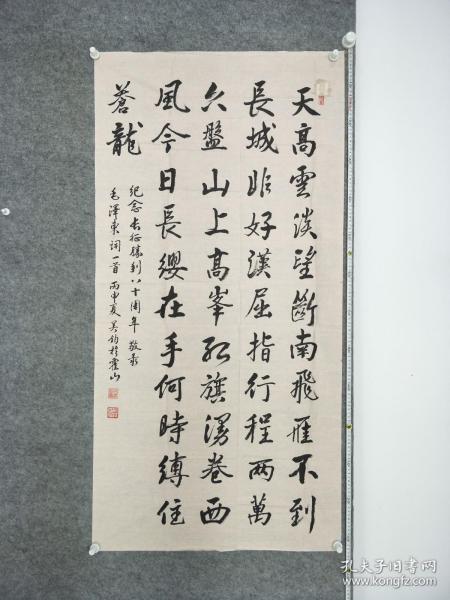 天高雲淡望斷南飛雁不到
長城非好漢屈指行程兩萬
六盤山上高峯紅旗漫卷西
風今日長纓在手何時縛住
蒼龍
紀念長征勝利八十周年 敬錄
毛澤東詞一首 丙申夏吴钧於霍山
孔夫子旧书网
www.kongfz.com